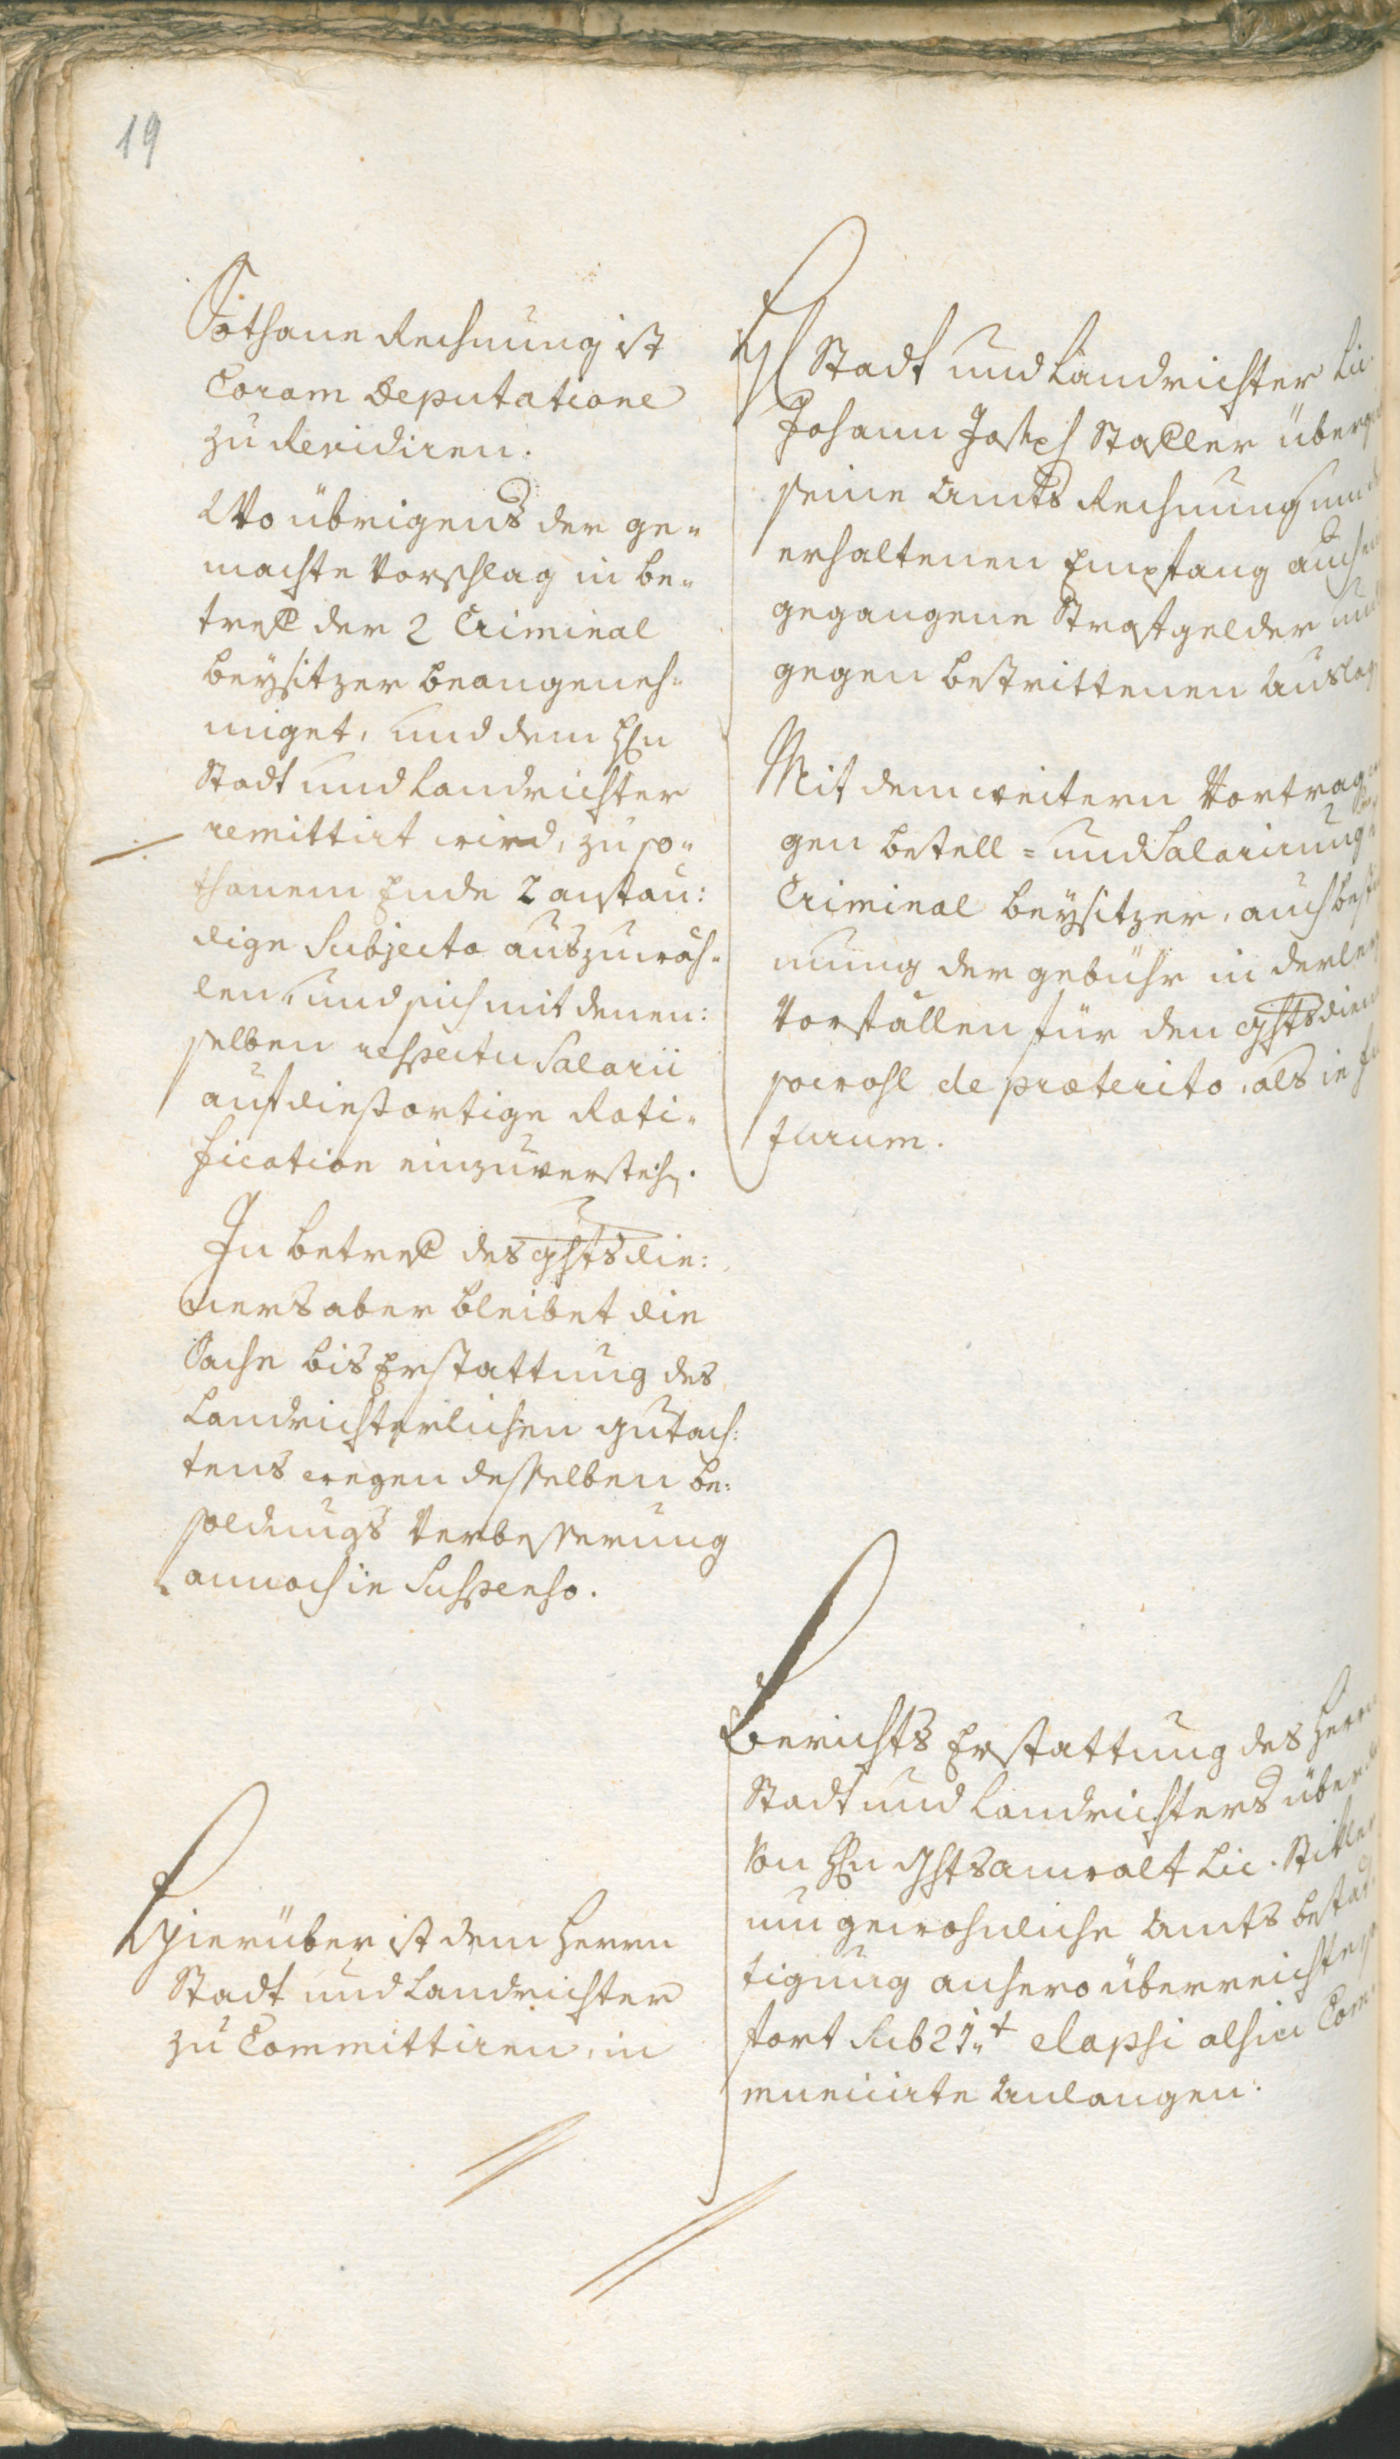 19
Sothane Rechnung ist
Coram Deputatione
zu Revidiren.
Wo übrigens der ge-
machte Vorschlag in be-
tref der 2 Criminal
beysitzer beangeneh-
miget, und dem Hn
Stadt und Landrichter
remittirt wird, zu so-
thanem Ende 2 anstän:
dige Subjecta auszuwäh-
len, und sich mit denen:
selben respectu Salarii
auf diesortige Rati-
fication einzuverstehn.
In betref des ghtsdie:
ners aber bleibet die
Sache bis Erstattung des
Landrichterlichen gutach:
tens wegen desselben be:
soldungs Verbesserung
annoch in Suspenso.
Hierüber ist dem Herrn
Stadt und Landrichter
zu Committiren, in
H Stadt und Landrichter Lic.
Johann Joseph Staller
seine Amts Rechnung um
erhaltenen Empfang auch
gegangene Strafgelder
gegen bestrittenen
Mit dem weitern Vortrag
gen bestell- und Salarirung
Criminal beysitzer, auch
mung der gebühr in
Vorfällen für den
sowohl de præterito, als in fu
turum.
Berichts Erstattung des Herrn
Stadt und Landrichters über
von Hn Ghtsanwalt Lic.
um gewohnliche Amts bestät
tigung anhero überreicht
fort Sub 21t elapsi alhin Com
municirte Anlangen.